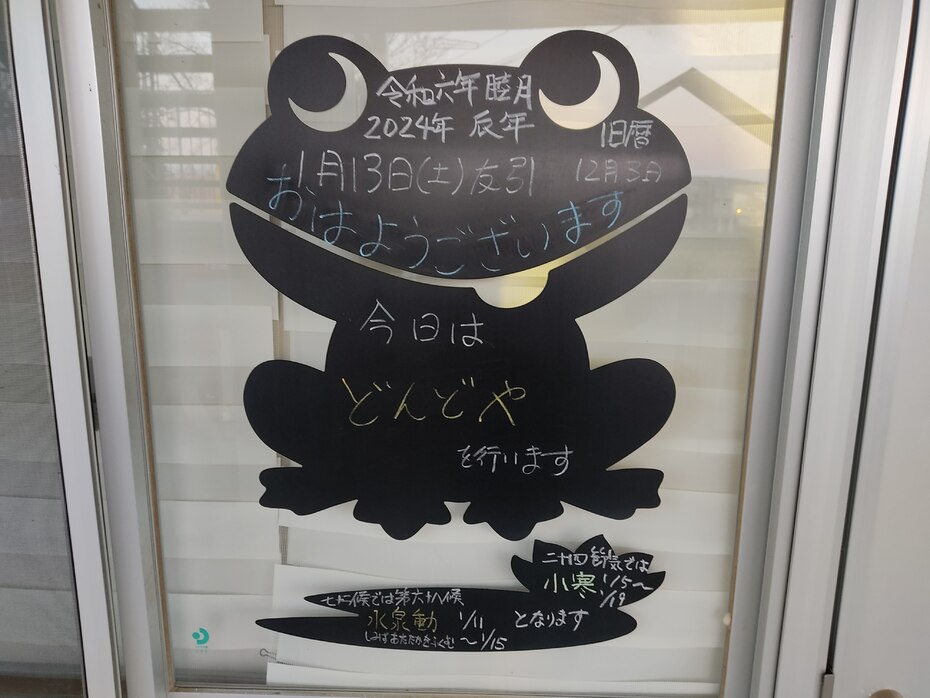 令和六年睦月
2024年 辰年
旧暦
1月13日(土)友引
12月3日
おはようございます
今日は
どんどや
を行います
二十四節気では
小寒 1/5～
1/19
七十二候では第六十八候
水泉動 1/11
しみずあたたかをふくむ
～1/15
となります